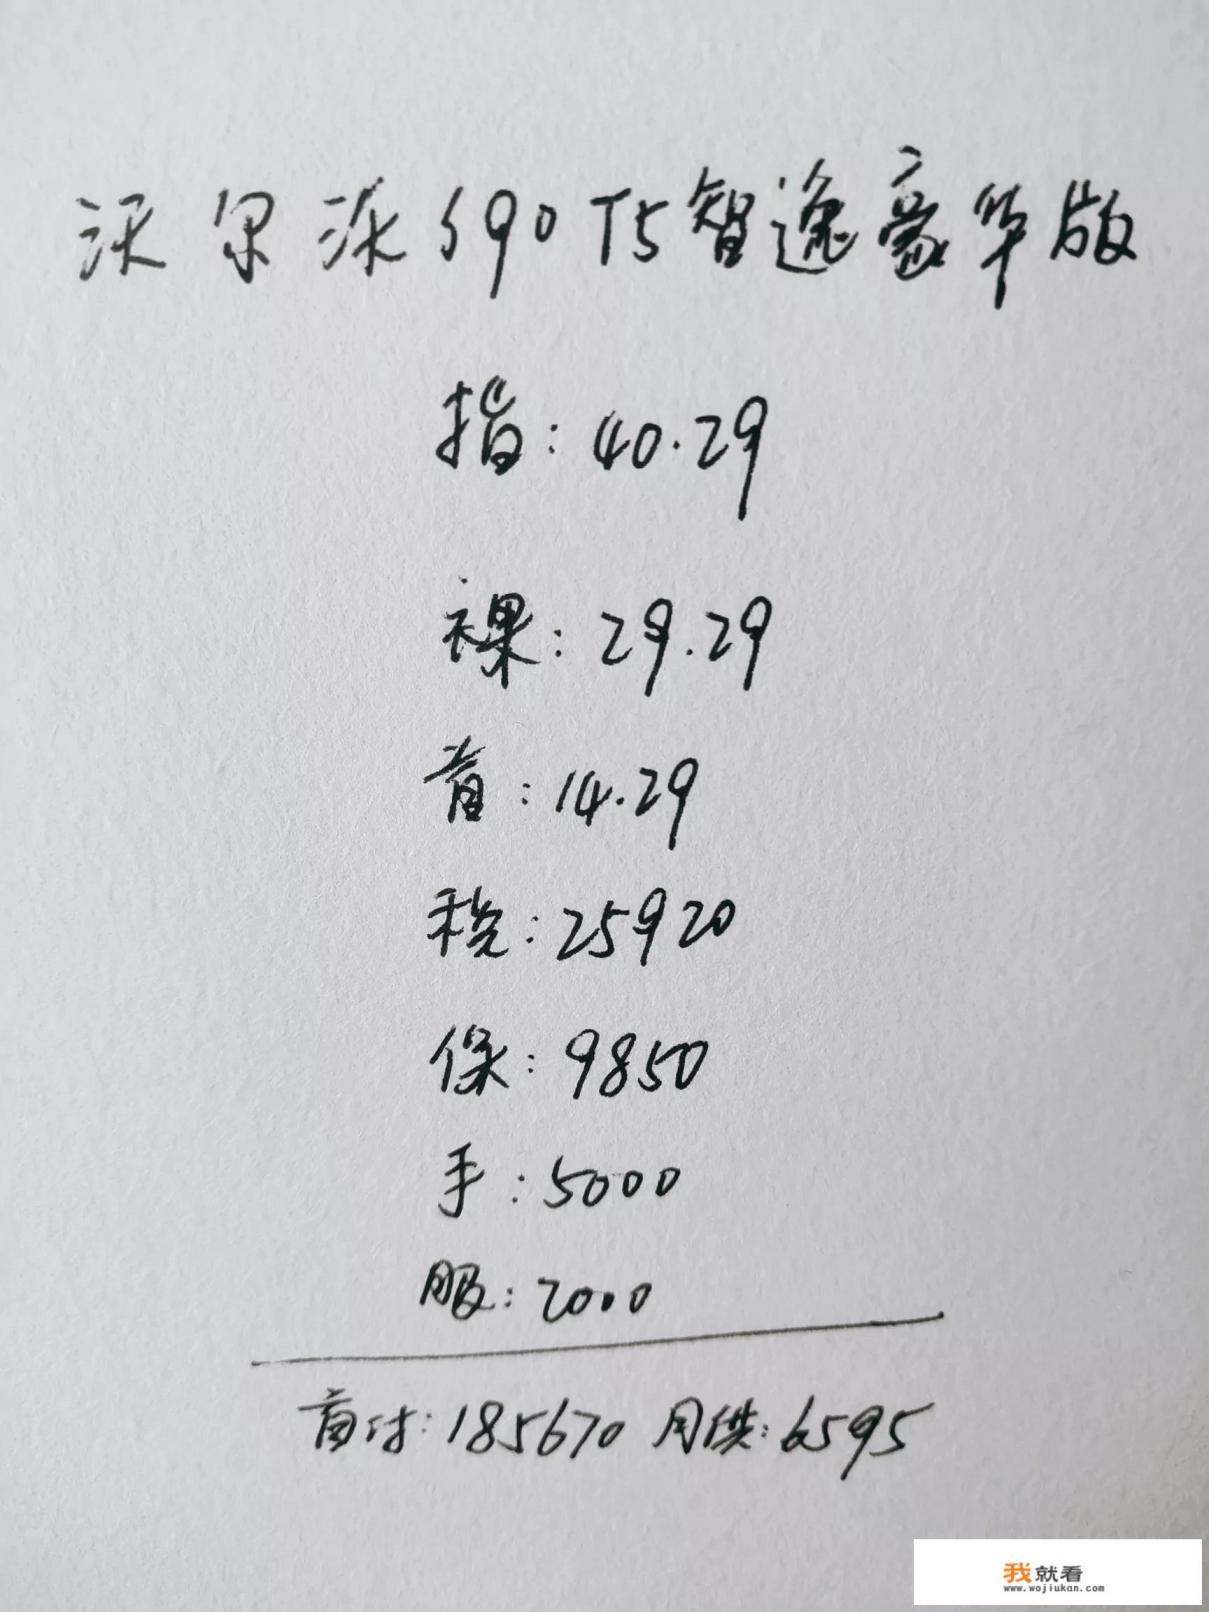 沃尔沃S90 T5智逸豪华版
指：40.29
裸：29.29
首：14.29
税：25920
保：9850
手：5000
服：2000
首付：185670 月供：6595
我就看
www.wojiukan.com